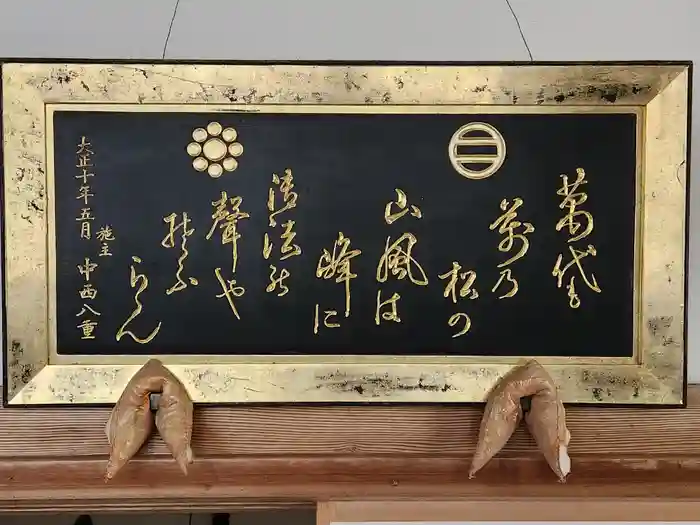 萬代も
萬乃
松の
山風は
峰に
清法能
聲や
楚ふ
らん
大正十年五月
施主
中西八重